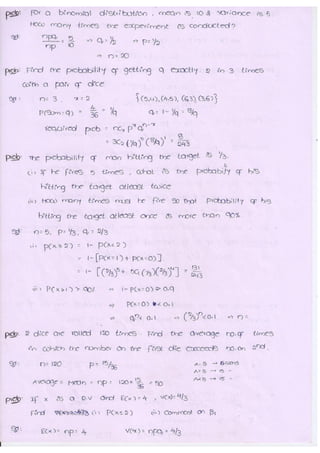 prob: For a binomial distribution, mean is 10 & variance is 5.
How many times the experiment is conducted?
Sol: npq/np = 5/10 ⇒ q = 1/2 ⇒ p = 1/2
⇒ n = 20
prob: Find the probability of getting 9 exactly 2 in 3 times
with a pair of dice
Sol: n = 3, x = 2 {(5,4), (4,5), (6,3) (3,6)}
P(Sum=9) = 4/36 = 1/9 q = 1 - 1/9 = 8/9
required prob = nCx p^x q^n-x
= 3C2 (1/9)^2 (8/9)^1 = 8/243
prob The probability of man hitting the target is 1/3.
(i) If he fires 5 times, what is the probability of his
hitting the target atleast twice
(ii) How many times must he fire so that probability of his
hitting the target atleast once is more than 90%
Sol: n=5, P=1/3, q=2/3
(i) P(x≥2) = 1 - P(x<2)
= 1 - [P(x=1) + P(x=0)]
= 1 - [(2/3)^5 + 5C1 (1/3)(2/3)^4] = 131/243
(ii) P(x≥1) > 90% ⇒ 1 - P(x=0) > 0.9
⇒ P(x=0) < 0.1
⇒ q^n < 0.1 ⇒ (2/3)^n < 0.1 ⇒ n =
prob: 2 dice are rolled 120 times. Find the average no. of times
in which the number on the first die exceeds no. on 2nd.
Sol: n=120 p = 15/36
Average = Mean = np = 120 × 15/36 = 50
prob If x is a B.V and E(x)=4, V(x)=4/3
Find (i) P(x≤2) (ii) Comment on B1
Sol: E(x) = np = 4 V(x) = npq = 4/3